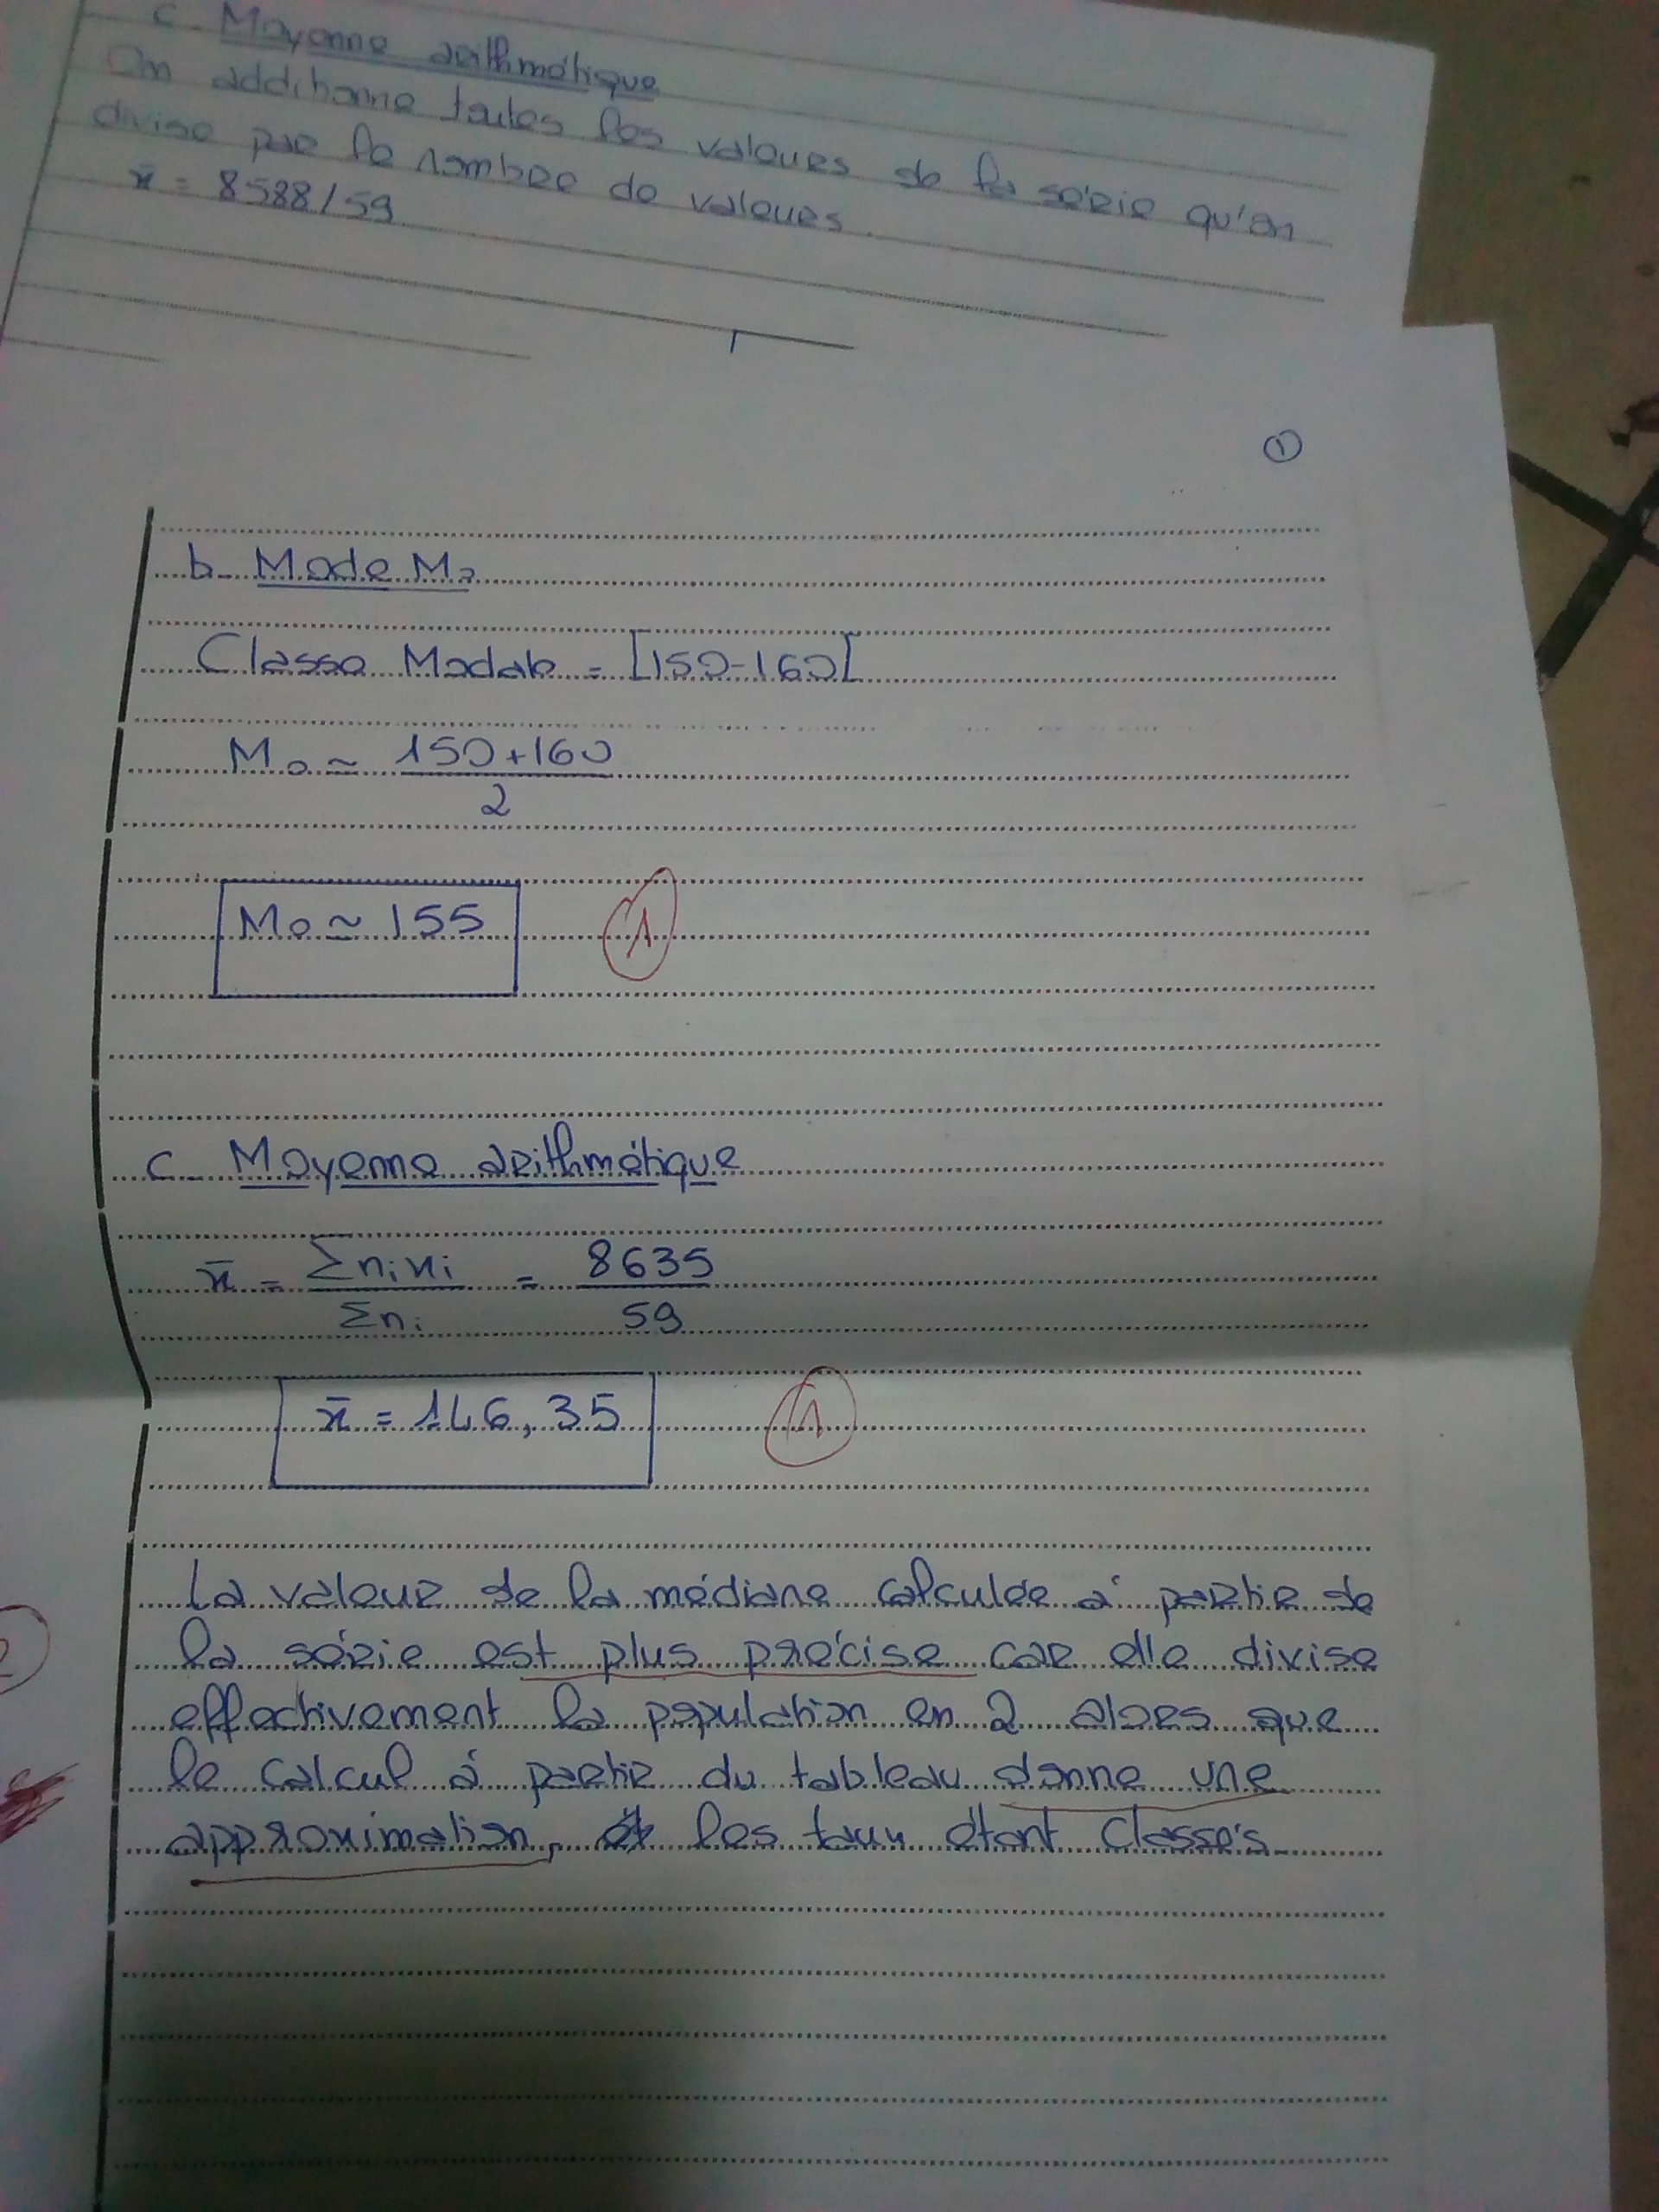 c. Moyenne arithmétique
On additionne toutes les valeurs de la série qu'on
divise par le nombre de valeurs.
x̄ = 8588/59
①
b- Mode Mo
Classe Modale = [150-160[
Mo ≃ 150+160
2
Mo ≃ 155
1
c- Moyenne arithmétique
x̄ = Σnixi / Σni = 8635 / 59
x̄ = 146,35
1
La valeur de la médiane calculée à partir de
la série est plus précise car elle divise
effectivement la population en 2 alors que
le calcul à partir du tableau donne une
approximation, les taux étant classés.